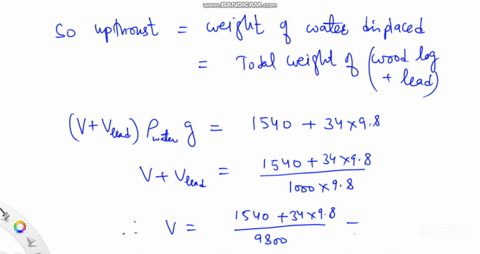 www.bandicam.com
So upthrust = weight of water displaced
= Total weight of (wood log + lead)
(V + V_lead) ρ_water g = 1540 + 34 × 9.8
V + V_lead = (1540 + 34 × 9.8) / (1000 × 9.8)
∴ V = (1540 + 34 × 9.8) / 9800 =